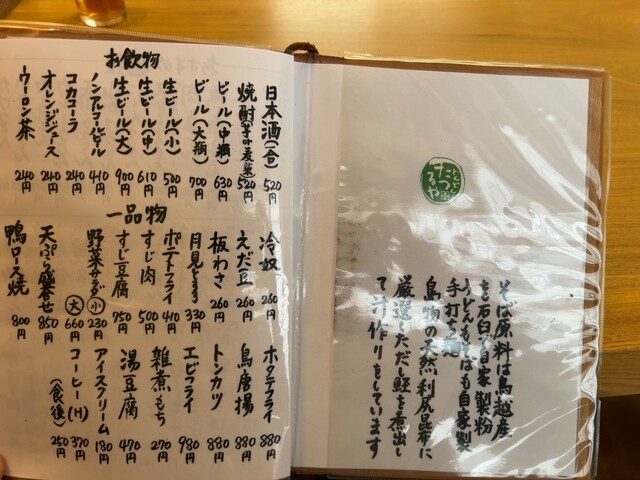 お飲物
日本酒(一合) 520円
焼酎(芋・麦・蕎麦) 520円
ビール(中瓶) 630円
ビール(大瓶) 700円
生ビール(小) 500円
生ビール(中) 610円
生ビール(大) 900円
ノンアルコールビール 410円
コカコーラ 240円
オレンジジュース 240円
ウーロン茶 240円
一品物
冷奴 260円
えだ豆 260円
板わさ 260円
月見とろろ 330円
ポテトフライ 410円
すじ肉 500円
すじ豆腐 750円
野菜サラダ 小 230円
大 660円
天ぷら盛合せ 850円
鴨ロース焼 800円
ホタテフライ 880円
鳥唐揚 880円
トンカツ 880円
エビフライ 980円
雑煮もち 270円
湯豆腐 470円
アイスクリーム 180円
コーヒー(H) 370円
(食後) 250円
そば原料は鳥越産
を石臼で自家製粉
うどんもそばも自家製
手打ち麺
島物の天然利尻昆布に
厳選しただし鰹を煮出し
て汁作りをしています